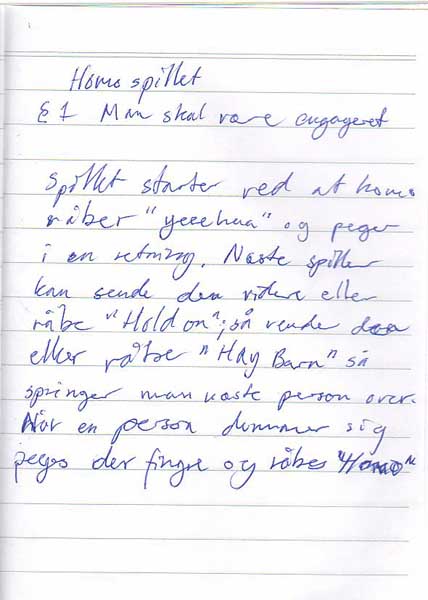 Homo spillet
§ 1 Man skal være engageret
Spillet starter ved at homo
råber "yeeehaa" og peger
i en retning. Næste spiller
kan sende den videre eller
råbe "Hold on"; så vende den
eller råbe "Hay Barn" så
springer man næste person over.
Når en person dummer sig
peges der fingre og råbes "Homo"